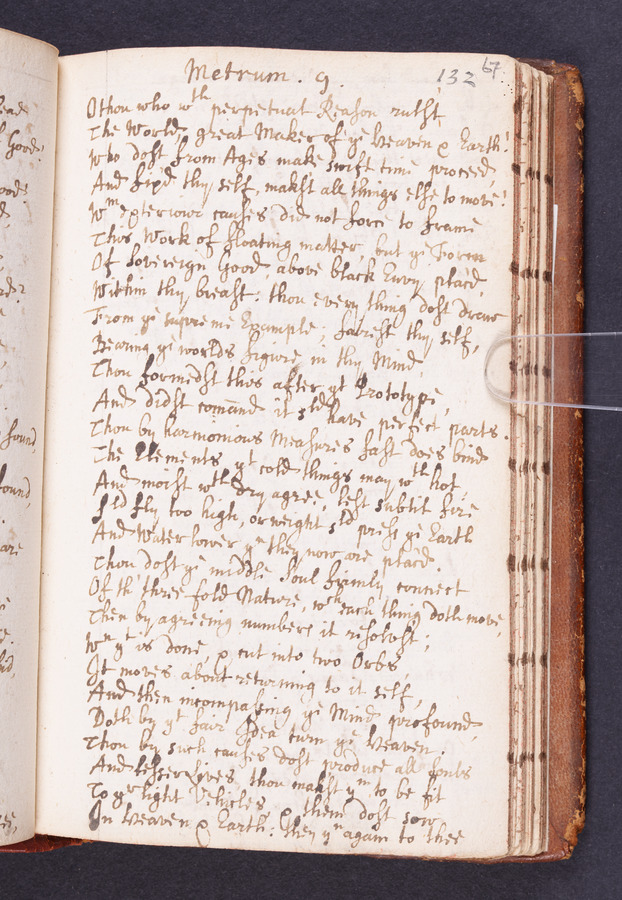 Metrum . 9 . 132 67
O thou who wth perpetual Reason rul'st,
The World, great Maker of ye Heaven & Earth!
Who dost from Ages make swift time proceed,
And fix'd thy self, mak'st all things else to move!
Wm Exteriour causes did not force to frame
This Work of floating matter, but ye Form
Of Sovereign Good, above black Envy plac'd,
Within thy breast: thou every thing dost draw
From ye supreme Example; fairest thy self,
Bearing ye worlds figure in thy Mind,
Thou formedst this after yt Prototype,
And didst comand it shd have perfect parts.
Thou by harmonious Measures fast does bind
The Elements yt cold things may wth hot,
And moist wth dry agree, lest subtil fire
shd fly too high, or weight shd press ye Earth
And Water lower yn they now are plac'd.
Thou dost ye middle Soul firmly connect
Of th' three fold Nature, wch each thing doth move,
Then by agreeing numbers it resolvest;
Wn yt is done, & cut into two Orbs
It moves about returning to it self,
And then incompassing ye Mind profound
Doth by yt fair Idea turn ye Heaven.
Thou by such causes dost produce all souls
And lesser Lives, thou mak'st ym to be fit
To yr light Vehicles & them dost sow
In Heaven & Earth: then yy again to thee